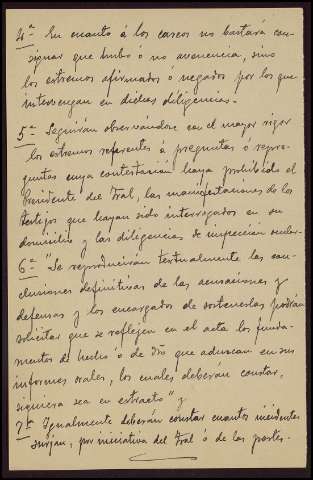 4ª En cuanto á los careos no bastará con-
signar que hubo ó no avenencia, sino
los extremos afirmados ó negados por los que
intervengan en dichas diligencias.
5ª Seguirán observándose con el mayor rigor
los extremos referentes á preguntas ó repre-
guntas cuya contestación haya prohibido el
Presidente del Tral, las manifestaciones de los
testigos que hayan sido interrogados en su
domicilio y las diligencias de inspección ocular.
6ª "Se reproducirán textualmente las con-
clusiones definitivas de las acusaciones y
defensas y los encargados de sostenerlas podrán
solicitar que se reflejen en el acta los funda-
mentos de hecho ó de dro que aduzcan en sus
informes orales, los cuales deberán constar,
siquiera sea en extracto" y
7ª Igualmente deberán constar cuantos incidentes
surjan, por iniciativa del Tral ó de las partes.